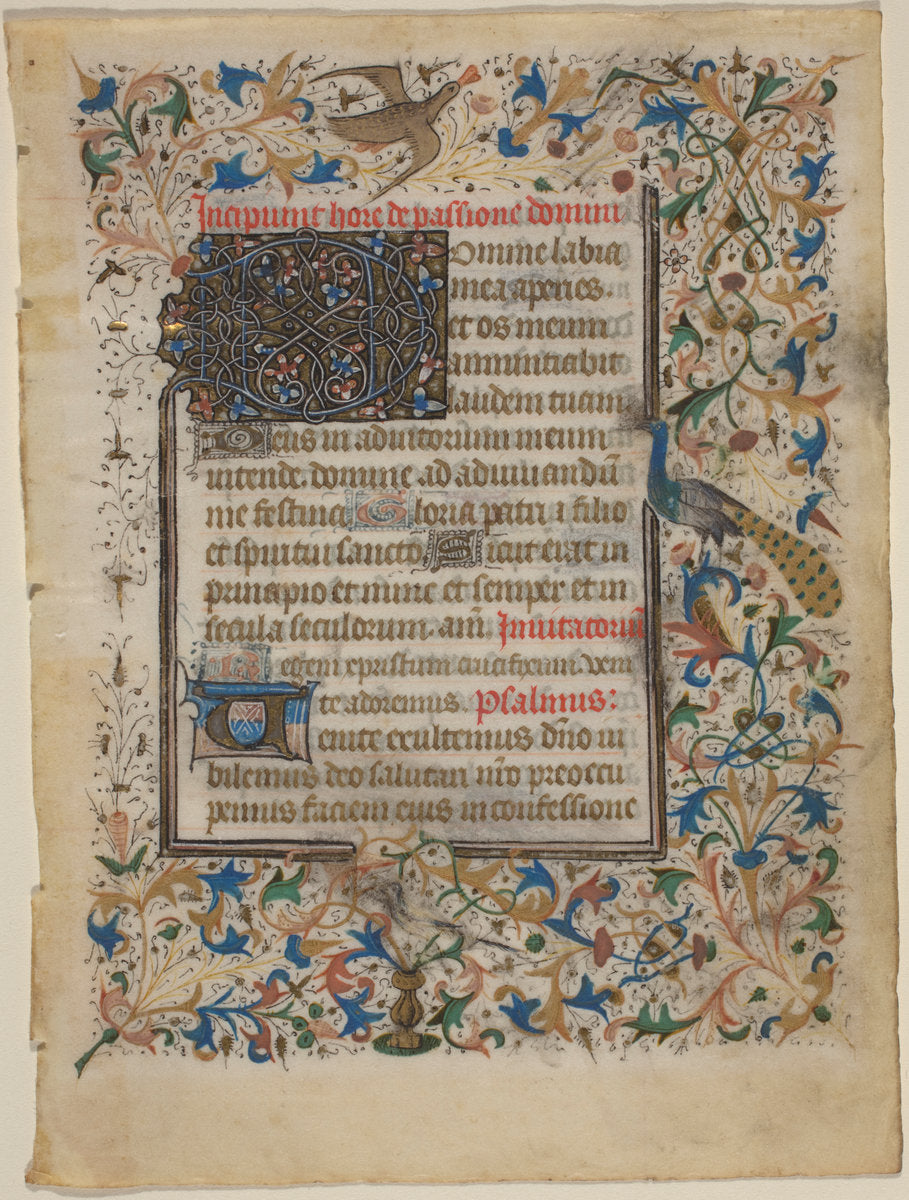 Incipiunt hore de passione domini
Domine labia
mea aperies.
et os meum
annunciabit
laudem tuam
Deus in adiutorium meum
intende. domine ad adiuuandū
me festina Gloria patri i filio
et spiritui sancto Sicut erat in
principio et nunc et semper et in
secula seculorum. am̄. Inuitatoriū
Regem cpristum crucifixum Veni
te adoremus. Psalmus:
Uenite exultemus dn̄o iu
bilemus deo salutari nr̄o preoccu
pemus faciem eius in confessione